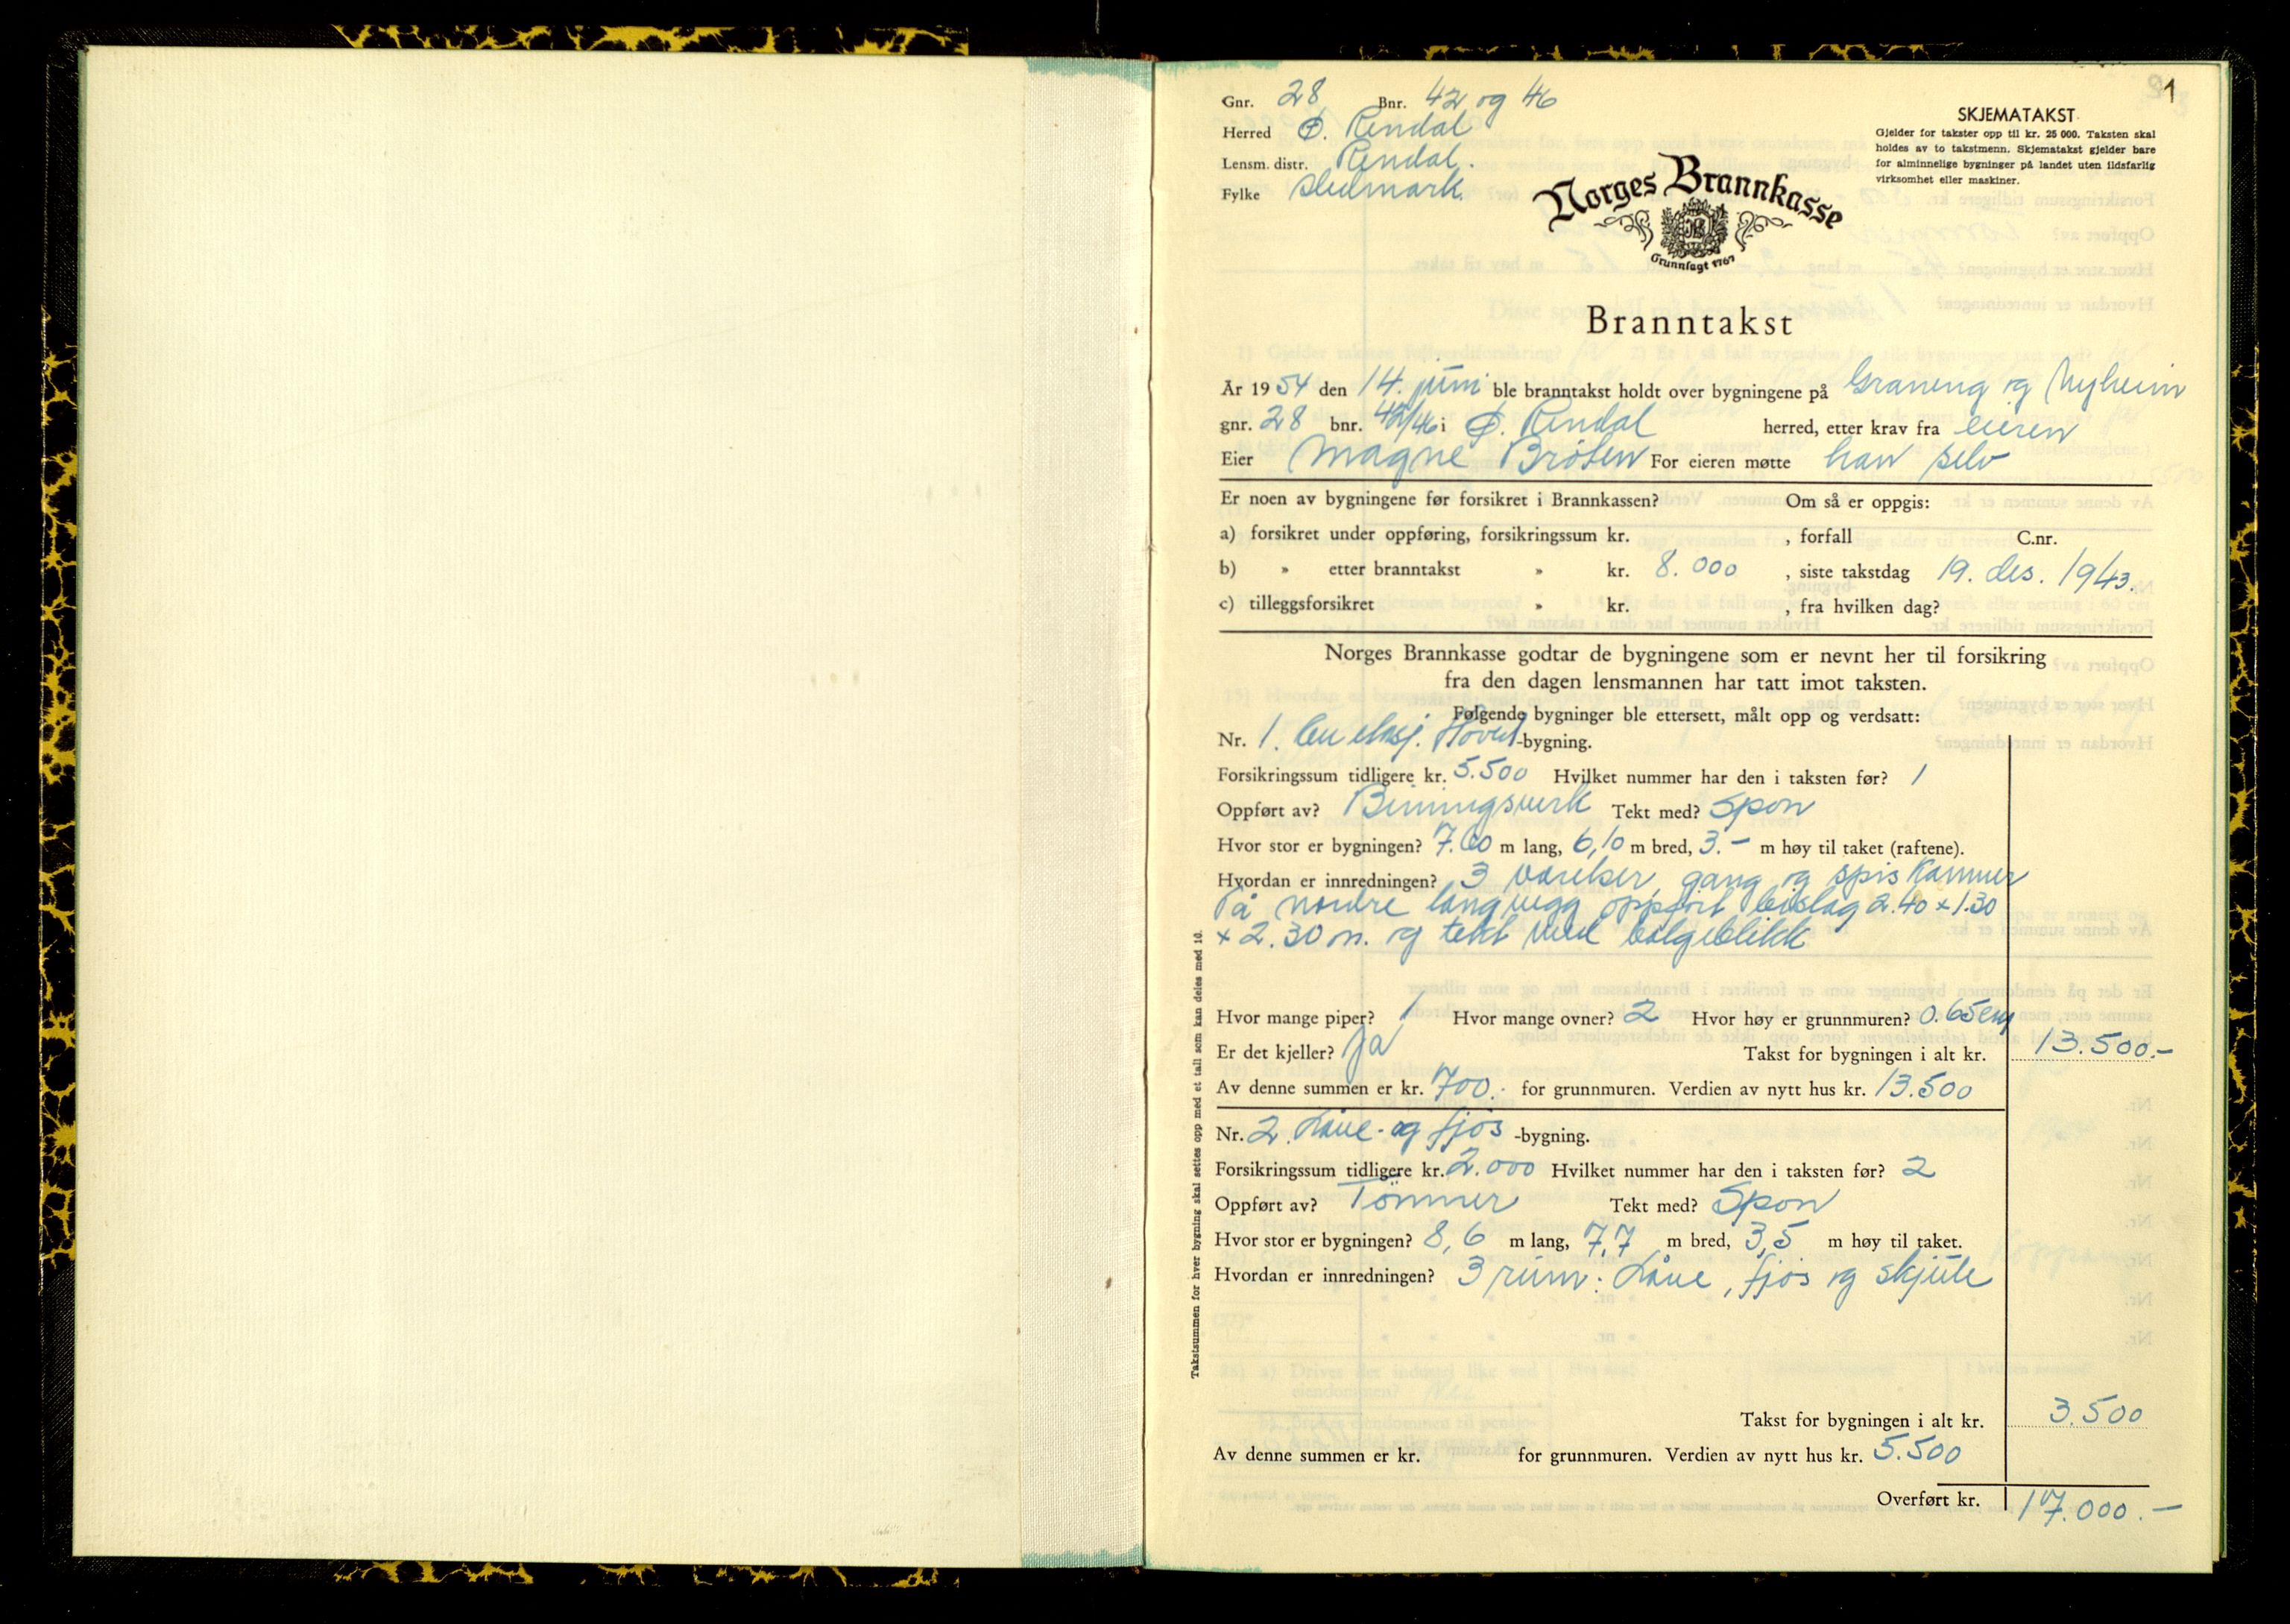 1
Gnr. 28 Bnr. 42 og 46
Herred Ø. Rendal
Lensm. distr. Rendal.
Fylke Hedmark.
SKJEMATAKST
Gjelder for takster opp til kr. 25 000. Taksten skal
holdes av to takstmenn. Skjematakst gjelder bare
for alminnelige bygninger på landet uten ildsfarlig
virksomhet eller maskiner.
Norges Brannkasse
Grunnlagt 1767
Branntakst
År 1954 den 14. juni ble branntakst holdt over bygningene på Graneng og Nyheim
gnr. 28 bnr. 42/46 i Ø. Rendal herred, etter krav fra eieren
Eier Magne Bröten For eieren møtte han selv
Er noen av bygningene før forsikret i Brannkassen? Om så er oppgis:
a) forsikret under oppføring, forsikringssum kr. , forfall C.nr.
b) » etter branntakst » kr. 8.000 , siste takstdag 19. des. 1943.
c) tilleggsforsikret » kr. , fra hvilken dag?
Norges Brannkasse godtar de bygningene som er nevnt her til forsikring
fra den dagen lensmannen har tatt imot taksten.
Følgende bygninger ble ettersett, målt opp og verdsatt:
Nr. 1. Hoved-bygning.
Forsikringssum tidligere kr. 5.500 Hvilket nummer har den i taksten før? 1
Oppført av? Binningsverk Tekt med? Spon
Hvor stor er bygningen? 7.60 m lang, 6,10 m bred, 3.- m høy til taket (raftene).
Hvordan er innredningen? 3 værelser, gang og spiskammer
På nordre langvegg oppført bislag 2.40 x 1.30
x 2.30 m. og tekt med bølgeblikk
Hvor mange piper? 1 Hvor mange ovner? 2 Hvor høy er grunnmuren? 0.65 cm
Er det kjeller? Ja Takst for bygningen i alt kr. 13.500.-
Av denne summen er kr. 700.- for grunnmuren. Verdien av nytt hus kr. 13.500
Nr. 2. Låve- og fjös -bygning.
Forsikringssum tidligere kr. 2.000 Hvilket nummer har den i taksten før? 2
Oppført av? Tömmer Tekt med? Spon
Hvor stor er bygningen? 8,6 m lang, 7,7 m bred, 3,5 m høy til taket.
Hvordan er innredningen? 3 rum: Låve, fjös og skjule
Takst for bygningen i alt kr. 3.500
Av denne summen er kr. for grunnmuren. Verdien av nytt hus kr. 5.500
Overført kr. 17.000.-
Takstsummen for hver bygning skal settes opp med et tall som kan deles med 10.